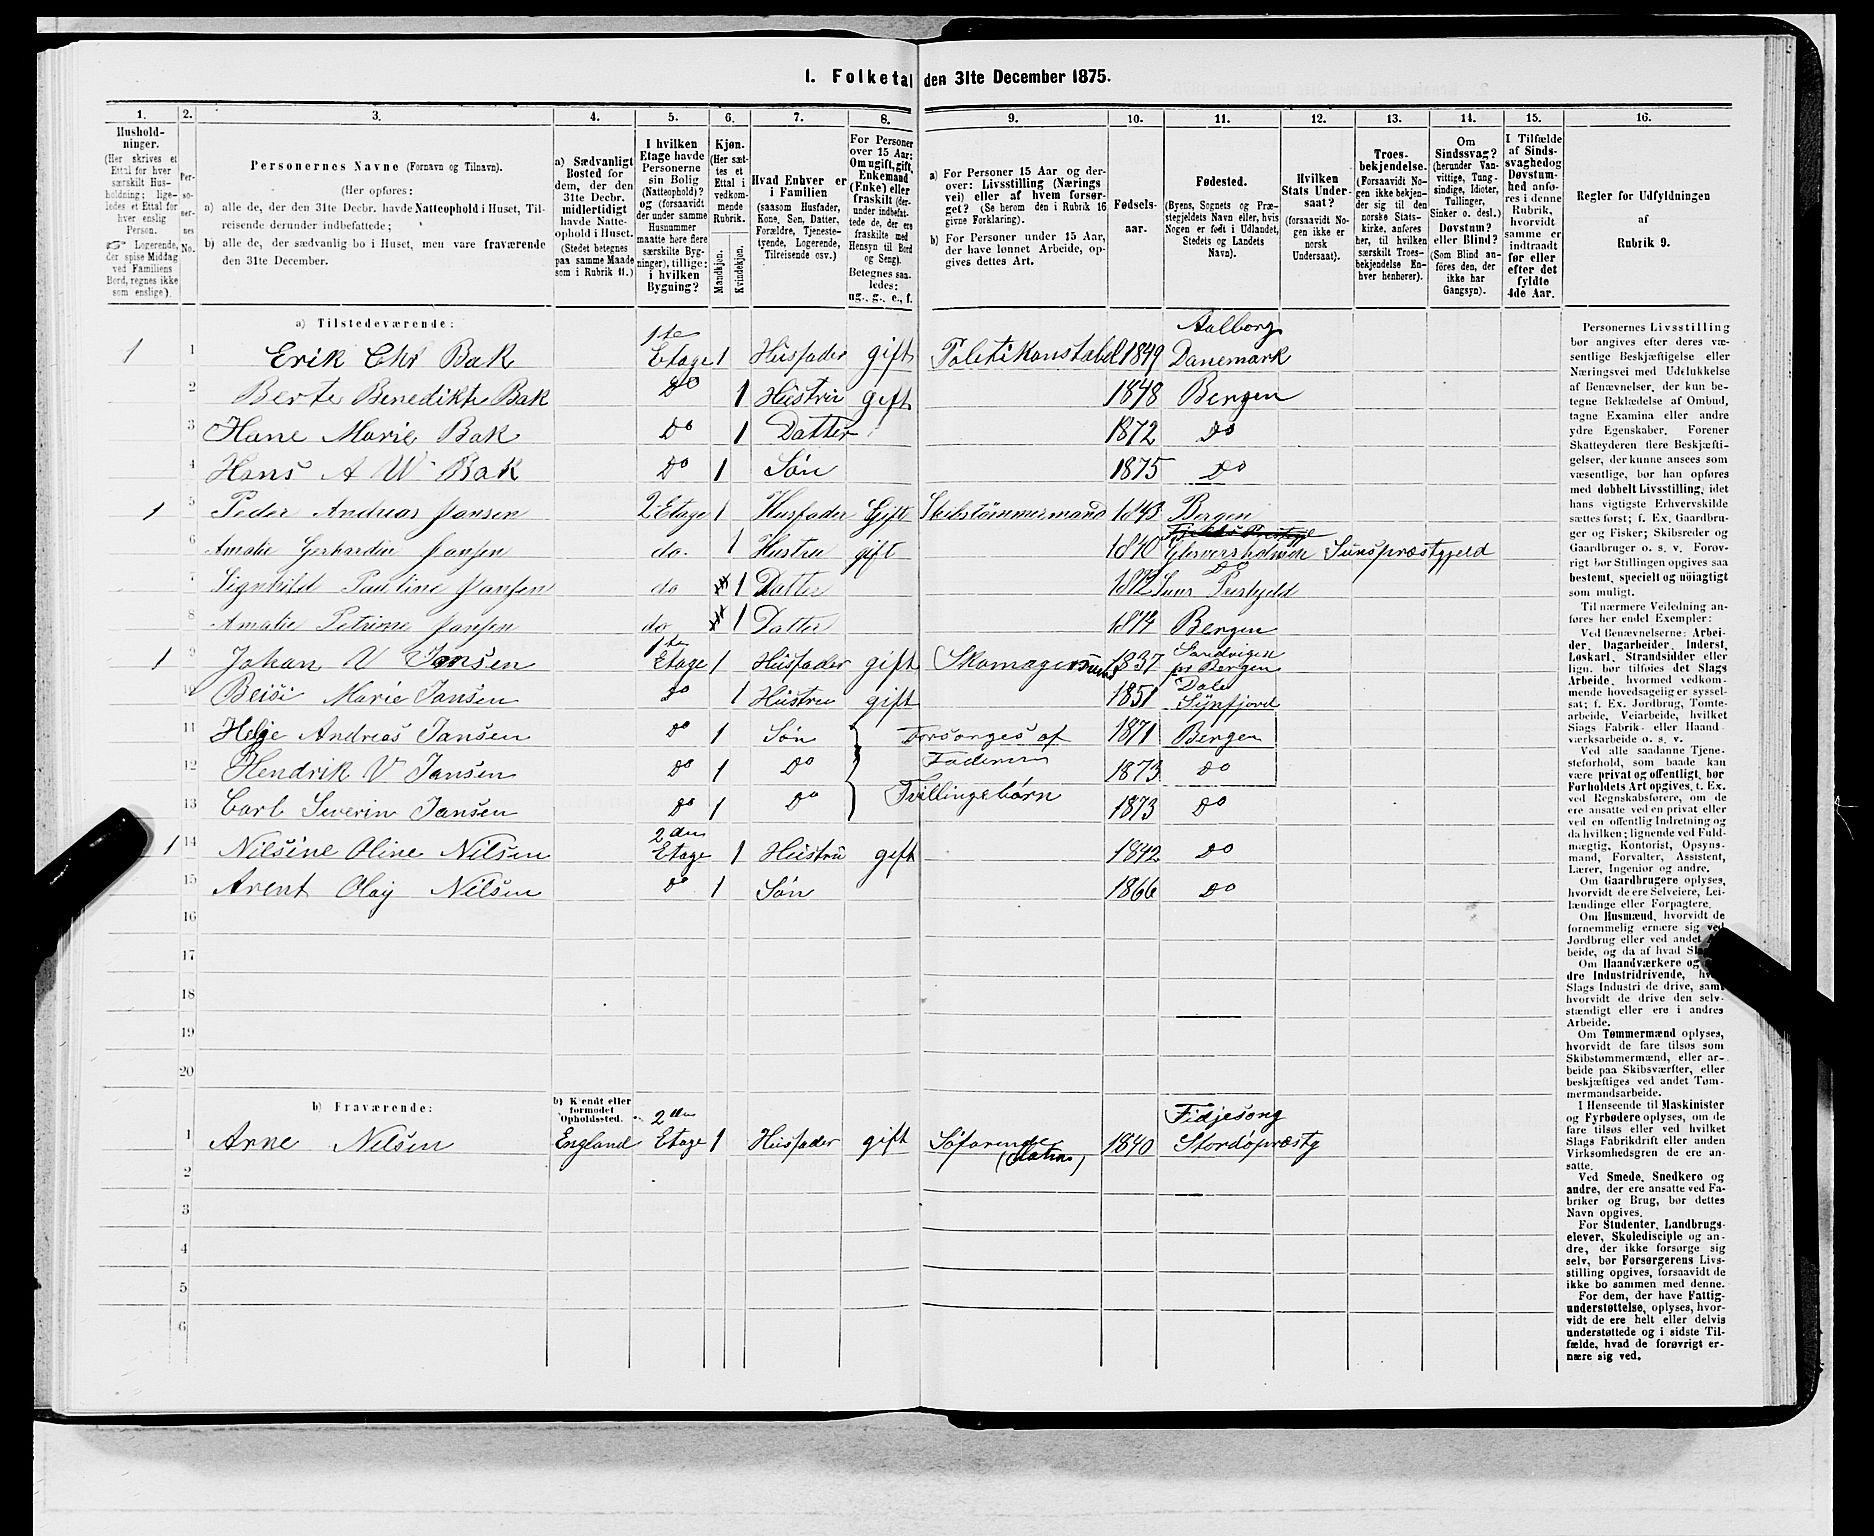 1. Folketal den 31te December 1875.
1. 2. 3. 4. 5. 6. 7. 8. 9. 10. 11. 12. 13. 14. 15. 16.
Hushold-
ninger.
(Her skrives et
Ettal for hver
særskilt Hus-
holdning; lige-
ledes et Ettal for
hver enslig
Person.
☞ Logerende,
der spise Middag
ved Familiens
Bord, regnes ikke
som enslige).
Per-
so-
ner-
nes
No.
Personernes Navne (Fornavn og Tilnavn).
(Her opføres:
a) alle de, der den 31te Decbr. havde Natteophold i Huset, Til-
reisende derunder indbefattede;
b) alle de, der sædvanlig bo i Huset, men vare fraværende
den 31te December.
a) Sædvanligt
Bosted for
dem, der den
31te Decbr.
midlertidigt
havde Natte-
ophold i Huset.
(Stedet betegnes
paa samme Maade
som i Rubrik 11.)
I hvilken
Etage havde
Personerne
sin Bolig
(Natteophold)?
og (forsaavidt
der under samme
Husnummer
maatte høre flere
særskilte Byg-
ninger), tillige:
i hvilken
Bygning?
Kjøn.
(Her sæt-
tes et
Ettal i
vedkom-
mende
Rubrik.
Mandkjøn.
Kvindekjøn.
Hvad Enhver er
i Familien
(saasom Husfader,
Kone, Søn, Datter,
Forældre, Tjeneste-
tyende, Logerende,
Tilreisende osv.)
For Personer
over 15 Aar:
Om ugift, gift,
Enkemand
(Enke) eller
fraskilt (der-
under indbefat-
tede de, der ere
fraskilte med
Hensyn til Bord
og Seng).
Betegnes saa-
ledes:
ug., g., e., f.
a) For Personer 15 Aar og der-
over: Livsstilling (Nærings
vei) eller af hvem forsør-
get? (Se herom den i Rubrik 16
givne Forklaring).
b) For Personer under 15 Aar,
der have lønnet Arbeide, op-
gives dettes Art.
Fødsels-
aar.
Fødested.
(Byens, Sognets og Præ-
stegjeldets Navn eller, hvis
Nogen er født i Udlandet,
Stedets og Landets
Navn).
Hvilken
Stats Under-
saat?
(forsaavidt No-
gen ikke er
norsk
Undersaat).
Troes-
bekjendelse.
(Forsaavidt No-
gen ikke bekjen-
der sig til den
norske Stats-
kirke, anføres
her, til hvilken
særskilt Troes-
bekjendelse En-
hver henhører).
Om
Sindssvag?
(herunder Van-
vittige, Tung-
sindige, Idioter,
Tullinger,
Sinker o. desl.)
Døvstum?
eller Blind?
(Som Blind an-
føres den, der
ikke har
Gangsyn).
I Tilfælde
af Sinds-
svaghed og
Døvstum-
hed anfø-
res i denne
Rubrik,
hvorvidt
samme er
indtraadt
før eller
efter det
fyldte
4de Aar.
Regler for Udfyldningen
af
Rubrik 9.
a) Tilstedeværende:
1 1 Erik Chr Bak 1te Etage 1 Husfader gift Poletikonstabel 1849 Aalborg Danemark
2 Berte Benedikte Bak Do 1 Hustru gift 1848 Bergen
3 Hane Marie Bak Do 1 Datter 1872 Do
4 Hans A W Bak Do 1 Søn 1875 Do
1 5 Peder Andreas Jansen 2 Etage 1 Husfader Gift Skibstømmermand 1843 Bergen
6 Amalie Gerhardin Jansen do. 1 Hustru gift 1840 Sunspræstgjeld
7 Signhild Pauline Jansen do 1 Datter 1872 Do Suns Prestgjeld
8 Amalie Petrine Jansen do 1 Datter 1874 Bergen
1 9 Johan V Jansen 1te Etage 1 Husfader gift 1837 Sandvigen ps Bergen
10 Marie Jansen Do 1 Hustru gift 1851 Dale Synfjord
11 Helge Andreas Jansen Do 1 Søn Forsorges af 1871 Bergen
12 Hendrik V Jansen Do 1 Do Faderen 1873 Do
13 Carl Severin Jansen Do 1 Do Tvillingebørn 1873 Do
1 14 Nilsine Oline Nilsen 2den Etage 1 Hustru gift 1842 Do
15 Arent Olaj Nilsen Do 1 Søn 1866 Do
16
17
18
19
20
b) Fraværende:
b) Kjendt eller
formodet
Opholdssted.
1 Arne Nilsen England 2den Etage 1 Husfader gift Søfarende 1840 Fidjesong Stordøpræstg
2
3
4
5
6
Personernes Livsstilling
bør angives efter deres væ-
sentlige Beskjæftigelse eller
Næringsvei med Udelukkelse
af Benævnelser, der kun be-
tegne Beklædelse af Ombud,
tagne Examina eller andre
ydre Egenskaber. Forener
Skatteyderen flere Beskjæfti-
gelser, der kunne ansees som
væsentlige, bør han opføres
med dobbelt Livsstilling, idet
hans vigtigste Erhvervskilde
sættes først; f. Ex. Gaardbru-
ger og Fisker; Skibsreder og
Gaardbruger o. s. v. Forøv-
rigt bør Stillingen opgives saa
bestemt, specielt og nöiagtigt
som muligt.
Til nærmere Veiledning an-
føres her endel Exempler:
Ved Benævnelserne: Arbei-
der, Dagarbeider, Inderst,
Løskarl, Strandsidder eller
lign. bør tilføies det Slags
Arbeide, hvormed vedkom-
mende hovedsagelig er syssel-
sat; f. Ex. Jordbrug, Tomte-
arbeide, Veiarbeide, hvilket
Slags Fabrik- eller Haand-
værksarbeide o. s. v.
Ved alle saadanne Tjene-
steforhold, som baade kan
være privat og offentligt, bør
Forholdets Art opgives, t. Ex.
ved Regnskabsførere, om de
ere ansatte ved en privat eller
ved en offentlig Indretning og
da hvilken; lignende ved Fuld-
mægtig, Kontorist, Opsyns-
mand, Forvalter, Assistent,
Lærer, Ingeniør og andre.
Om Gaardbrugere oplyses,
hvorvidt de ere Selveiere, Lei-
lændinge eller Forpagtere.
Om Husmænd, hvorvidt de
fornemmelig ernære sig ved
Jordbrug eller ved andet Ar-
beide, og da af hvad Slags.
Om Haandværkere og an-
dre Industridrivende, hvad
Slags Industri de drive, samt
hvorvidt de drive den selv-
stændigt eller ere i andres
Arbeide.
Om Tømmermænd oplyses,
hvorvidt de fare tilsøs som
Skibstømmermænd, eller ar-
beide paa Skibsværfter, eller
beskjæftiges ved andet Tøm-
mermandsarbeide.
I Henseende til Maskinister
og Fyrbødere oplyses, om de
fare tilsøs eller ved hvilket
Slags Fabrikdrift eller anden
Virksomhedsgren de ere an-
satte.
Ved Smede, Snedkere og
andre, der ere ansatte ved Fa-
briker og Brug, bør dettes
Navn opgives.
For Studenter, Landbrugs-
elever, Skoledisciple og an-
dre, der ikke forsørge sig
selv, bør Forsørgerens Livs-
stilling opgives, forsaavidt de
ikke bo sammen med denne.
For dem, der have Fattig-
understøttelse, oplyses, hvor-
vidt de ere helt eller delvis
understøttede og i sidste Til-
fælde, hvad de forøvrigt er-
nære sig ved.